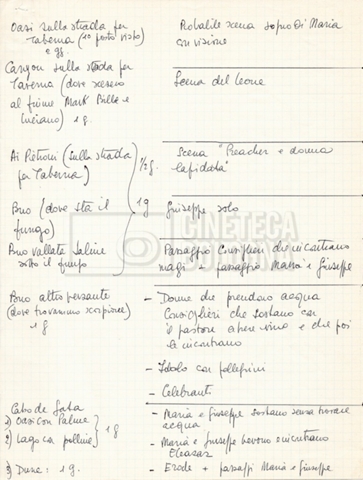 Oasi sulla strada per
Taberna (1° posto visto)
e gg.
Probabile scena sogno di Maria
con visione
Canyon sulla strada per
Taverna (dove scesero
al fiume Mark Bille e
Luciano) 1 g.
Scena del leone
Ai Pietroni (sulla strada
per Taberna) 1/2 g.
Scena "Preacher e donna
lapidata"
Bno (dove sta il
fungo) 1 g
Giuseppe solo
Bno vallate saline
sotto il fungo
Passaggio Consiglieri che incontrano
magi + passaggio Maria e Giuseppe
Bono altro versante
(dove trovammo scorpione)
1 g
- Donne che prendono acqua
Consiglieri che sostano con
il pastore a bere vino e che poi
le incontrano
- Idolo con pellegrini
- Celebranti
Cabo de Gata
1) Oasi con Palme
2) Lago con polline
1 g
- Maria e Giuseppe sostano senza trovare
acqua
- Maria e Giuseppe bevono e incontrano
Eleazar
3) Dune: 1 g.
- Erode + passaggi Maria e Giuseppe
CINETECA